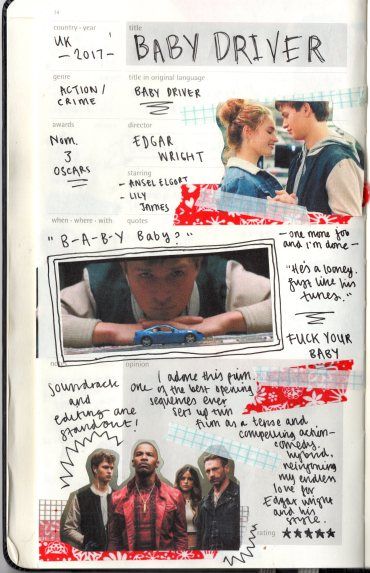 14
country - year
title
UK
- 2017 -
BABY DRIVER
genre
title in original language
ACTION /
CRIME
BABY DRIVER
awards
director
Nom.
3
OSCARS
EDGAR
WRIGHT
starring
- ANSEL ELGORT
- LILY
JAMES
when - where - with
quotes
"B-A-B-Y Baby?"
- one more job
and i'm done -
"He's a looney.
Just like his
tunes."
FUCK YOUR
BABY
opinion
Soundtrack
and
editing are
standout!
I adore this film.
one of the best opening
sequences ever
sets up this
film as a tense and
compelling action-
comedy
hybrid,
my endless
love for
Edgar Wright
and his
style.
rating
★★★★★